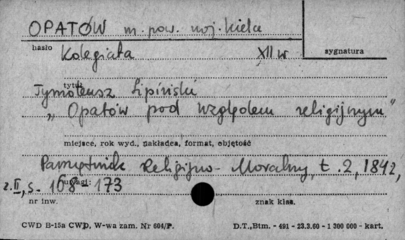 OPATÓW m. pow. woj. kiela
hasło Kolegiata XII w sygnatura
tytuł
Tymoteusz Lipiński
„Opatów pod względem religijnym"
miejsce, rok wyd., nakładca, format, objętość
Pamiętnik Religijno-Moralny, t. 2, 1842,
z. II, s. 168-173
nr inw. znak klas.
CWD B-15a CWD, W-wa zam. Nr 604/P. D.T.,Btm. - 491 - 23.2.60 - 1 300 000 - kart.